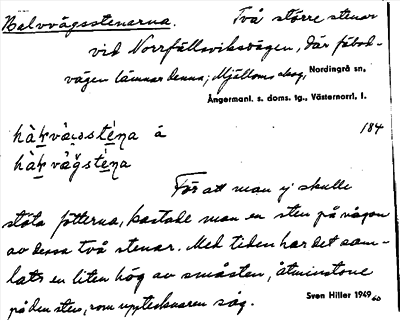 Halvvägsstenarna. Två större stenar
vid Norrfällsviksvägen, där fäbod-
vägen lämnar denna; Mjällomslandet, Nordingrå sn,
Ångermanl. s. doms. tg., Västernorrl. l.
184
För att man ej skulle
stöta fötterna, kastade man en sten på någon
av dessa två stenar. Med tiden har det sam-
lats en liten hög av småsten, åtminstone
på den sten, som upptecknaren såg. Sven Hiller 1949